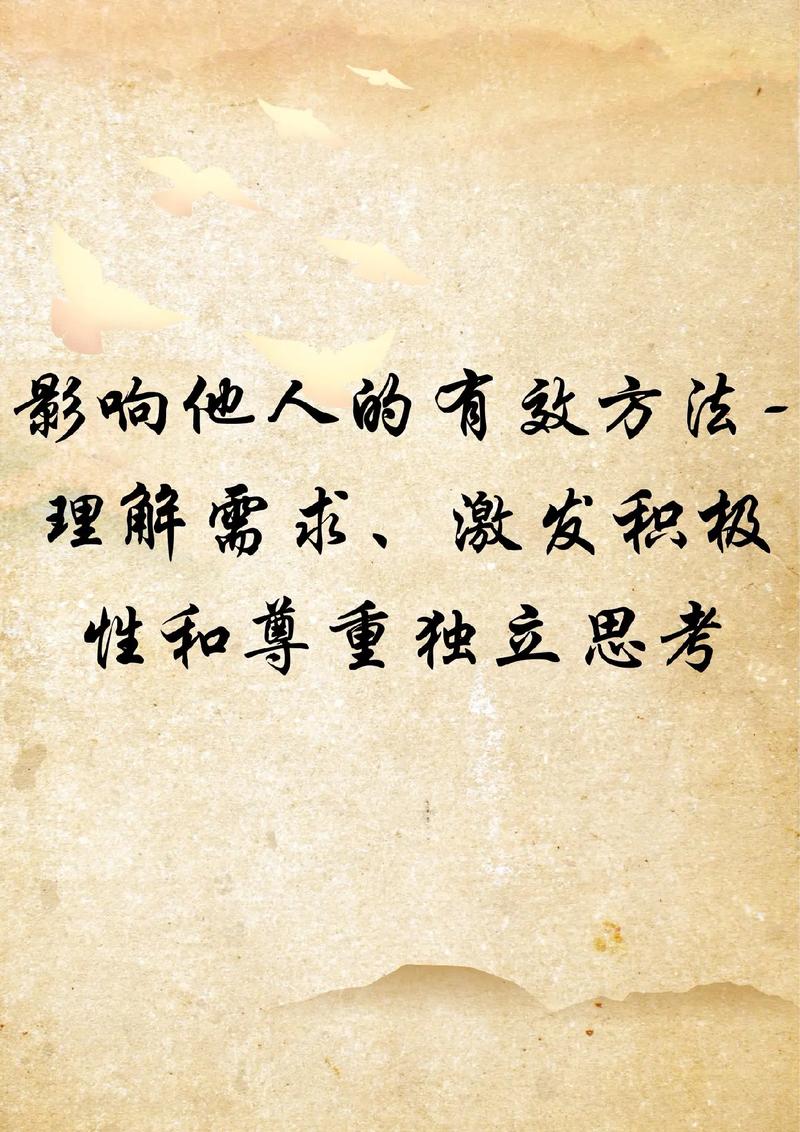 影响他人的有效方法-
理解需求、激发积极
性和尊重独立思考